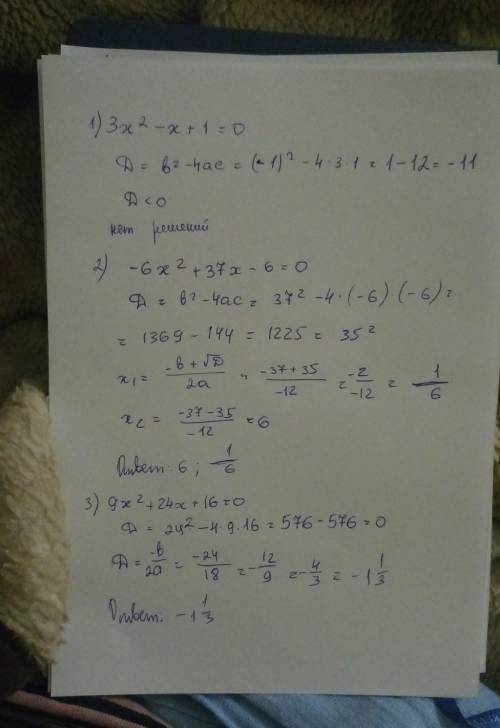 1) 3x² - x + 1 = 0
Д = в² - 4ac = (-1)² - 4·3·1 = 1 - 12 = -11
Д < 0
нет решений
2) -6x² + 37x - 6 = 0
Д = в² - 4ac = 37² - 4·(-6)·(-6) =
= 1369 - 144 = 1225 = 35²
x₁ = (-в + √Д)/2a = (-37 + 35)/-12 = -2/-12 = 1/6
x₂ = (-37 - 35)/-12 = 6
Ответ: 6 ; 1/6
3) 9x² + 24x + 16 = 0
Д = 24² - 4·9·16 = 576 - 576 = 0
Д = -в/2a = -24/18 = -12/9 = -4/3 = -1 1/3
Ответ. -1 1/3